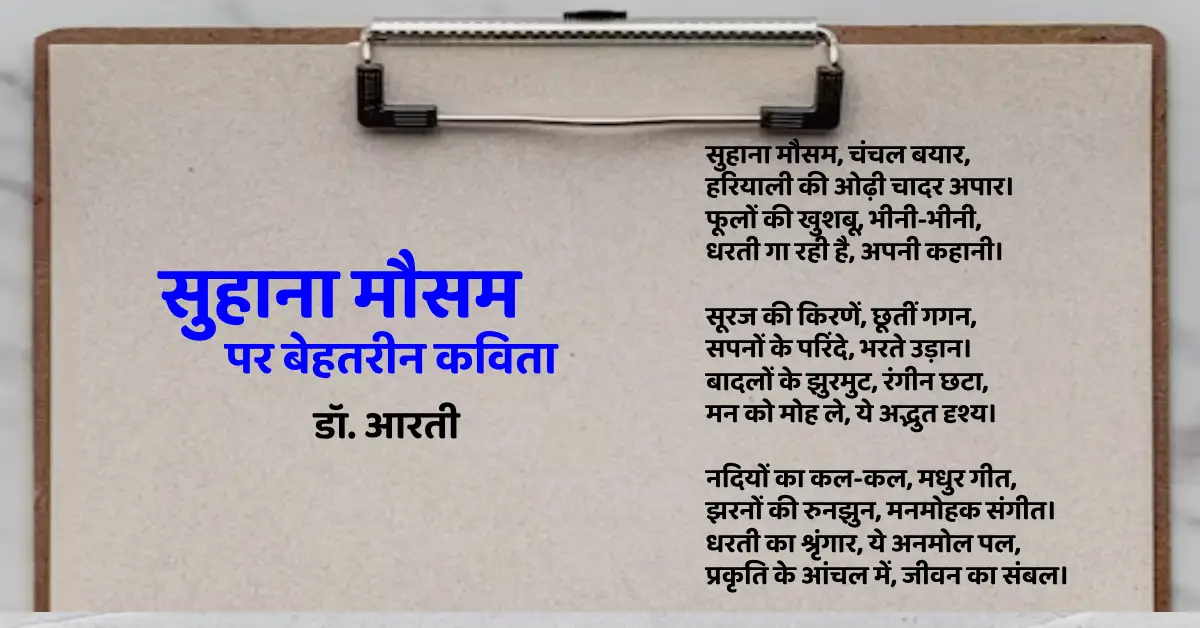 सुहाना मौसम
पर बेहतरीन कविता
डॉ. आरती
सुहाना मौसम, चंचल बयार,
हरियाली की ओढ़ी चादर अपार।
फूलों की खुशबू, भीनी-भीनी,
धरती गा रही है, अपनी कहानी।
सूरज की किरणें, छूतीं गगन,
सपनों के परिंदे, भरते उड़ान।
बादलों के झुरमुट, रंगीन छटा,
मन को मोह ले, ये अद्भुत दृश्य।
नदियों का कल-कल, मधुर गीत,
झरनों की रुनझुन, मनमोहक संगीत।
धरती का श्रृंगार, ये अनमोल पल,
प्रकृति के आंचल में, जीवन का संबल।